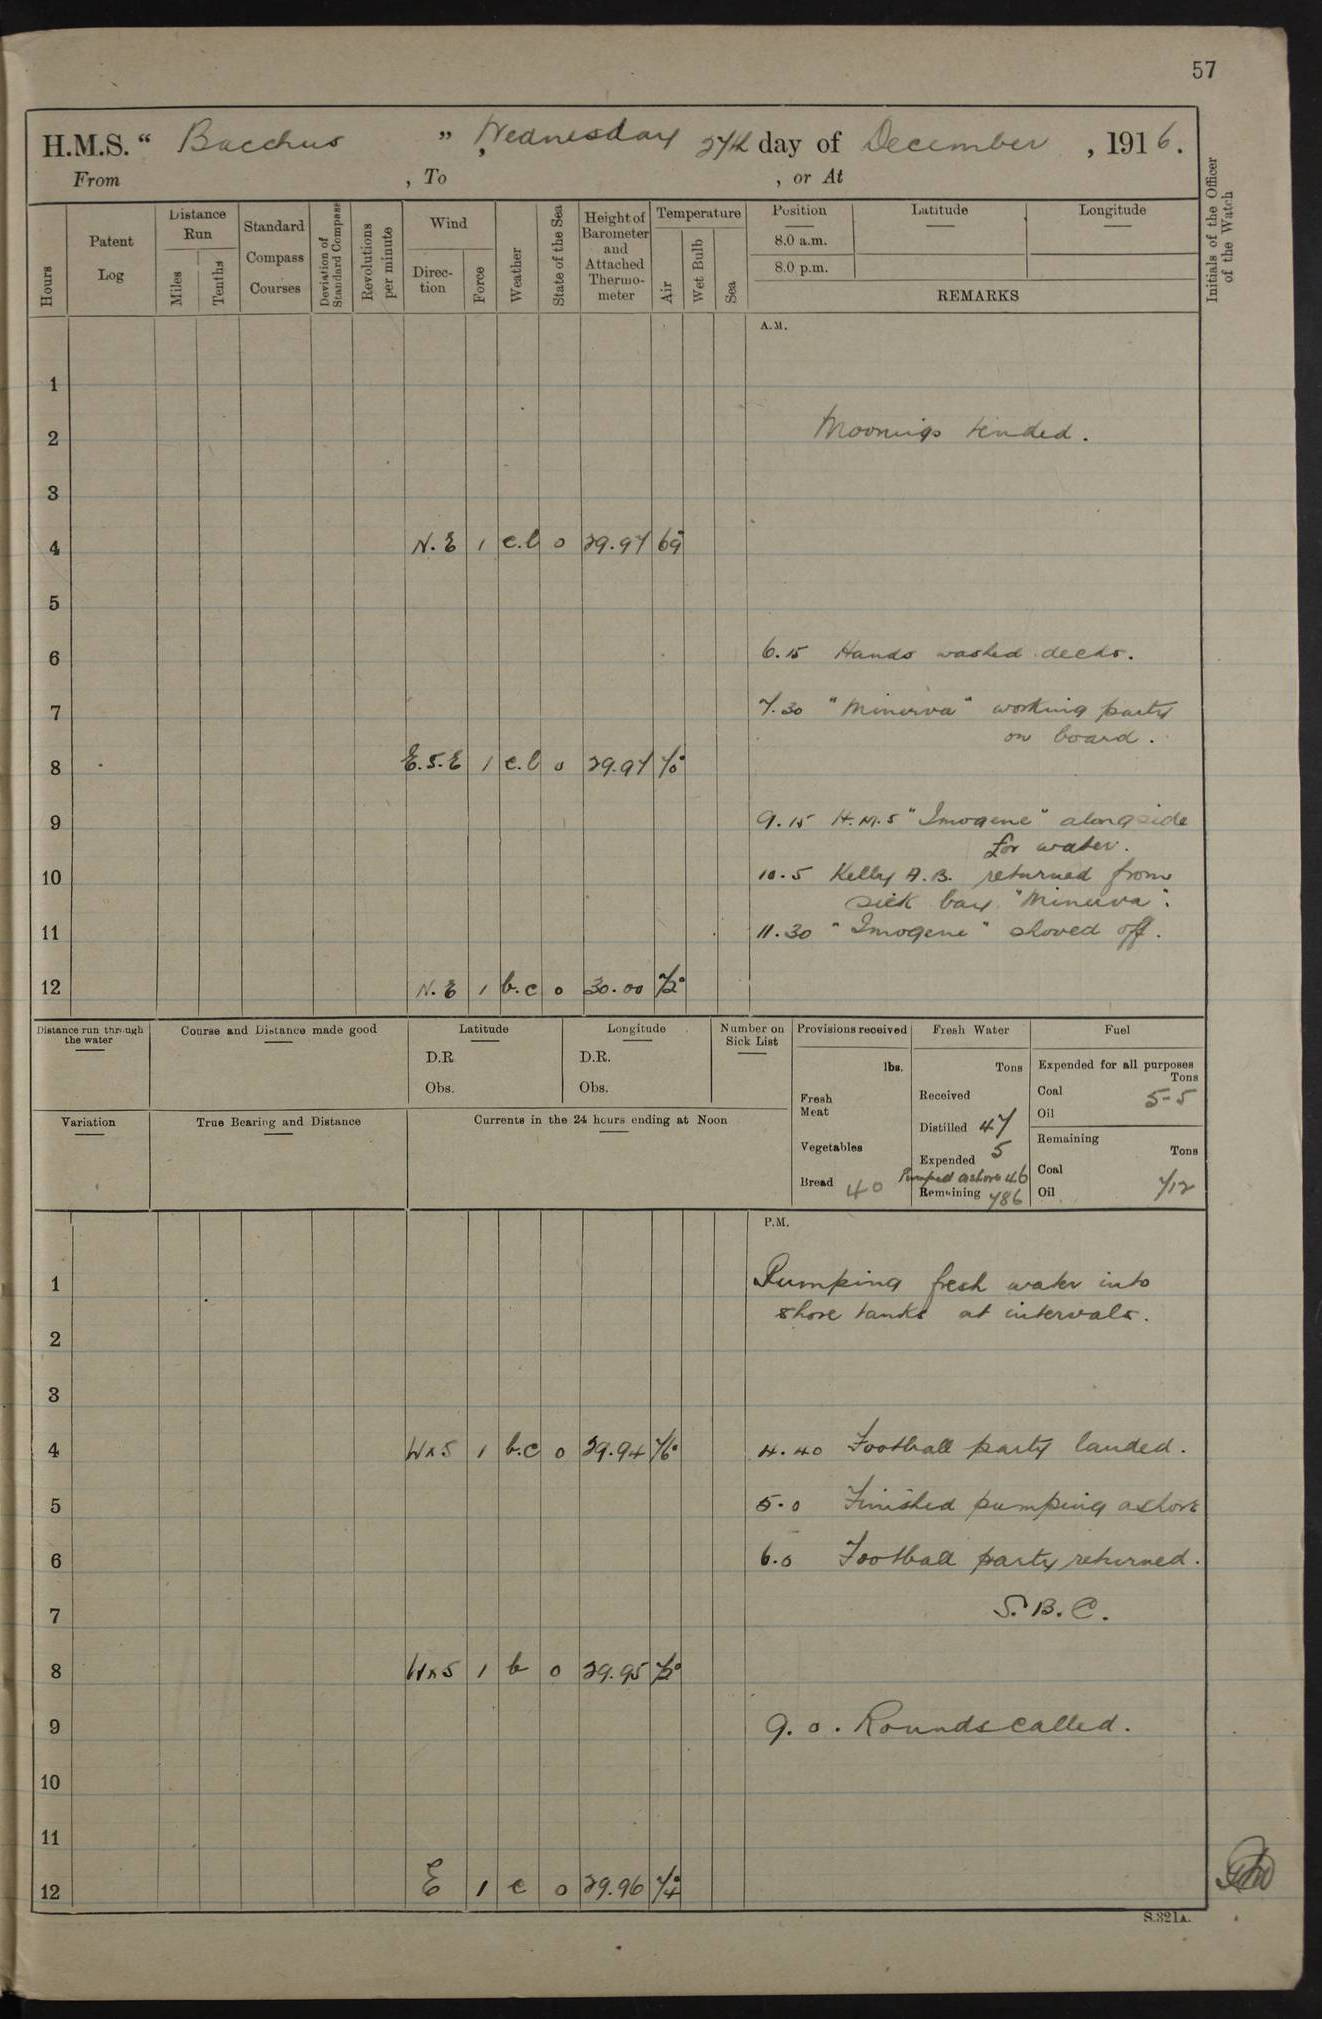 57
H.M.S. " Bacchus " , Wednesday 27th day of December , 1916.
From , To , or At
Hours
Patent Log
Distance Run
Miles
Tenths
Standard Compass Courses
Deviation of Standard Compass
Revolutions per minute
Wind
Direction
Force
Weather
State of the Sea
Height of Barometer and Attached Thermometer
Temperature
Air
Wet Bulb
Sea
Position
8.0 a.m.
8.0 p.m.
Latitude
Longitude
REMARKS
Initials of the Officer of the Watch
A.M.
1
2 Moorings tended.
3
4 N.E 1 c.b 0 29.97 69°
5
6 6.15 Hands washed decks.
7 7.30 "Minerva" working party
on board.
8 E.S.E 1 c.b 0 29.97 70°
9 9.15 H.M.S "Imogene" alongside
for water.
10 10.5 Kelly A.B. returned from
sick bay "Minerva".
11 11.30 "Imogene" shoved off.
12 N.E 1 b.c 0 30.00 72°
Distance run through the water
Course and Distance made good
Latitude
D.R
Obs.
Longitude
D.R.
Obs.
Number on Sick List
Provisions received
lbs.
Fresh Meat
Vegetables
Bread 40
Fresh Water
Tons
Received
Distilled 47
Expended 5
Pumped ashore 46
Remaining 786
Fuel
Expended for all purposes
Tons
Coal 5-5
Oil
Remaining
Tons
Coal
Oil 712
Variation
True Bearing and Distance
Currents in the 24 hours ending at Noon
P.M.
1 Pumping fresh water into
shore tanks at intervals.
2
3
4 WxS 1 b.c 0 29.94 76° 4.40 Football party landed.
5 5.0 Finished pumping ashore
6 6.0 Football party returned.
7 S.B.C.
8 WxS 1 b 0 29.95 72°
9 9.0. Rounds called.
10
11
12 E 1 c 0 29.96 74°
S.321A.